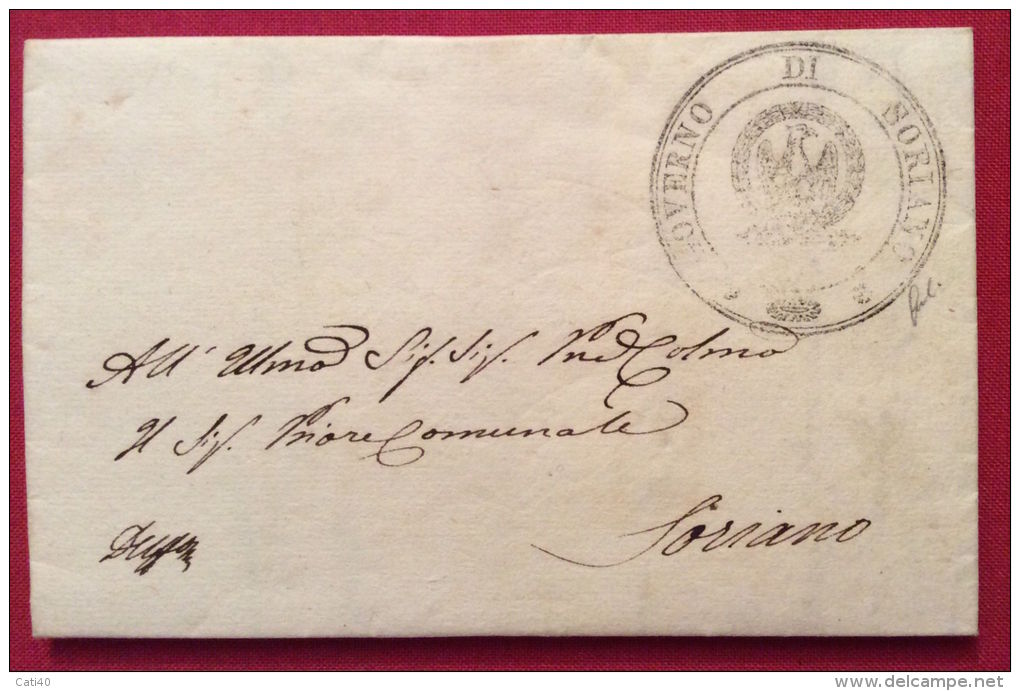 GOVERNO DI SORIANO
All' Illmo Sig. Sig. Pne Colmo
Il Sig. Priore Comunale
Soriano
Cati40
delcampe.net